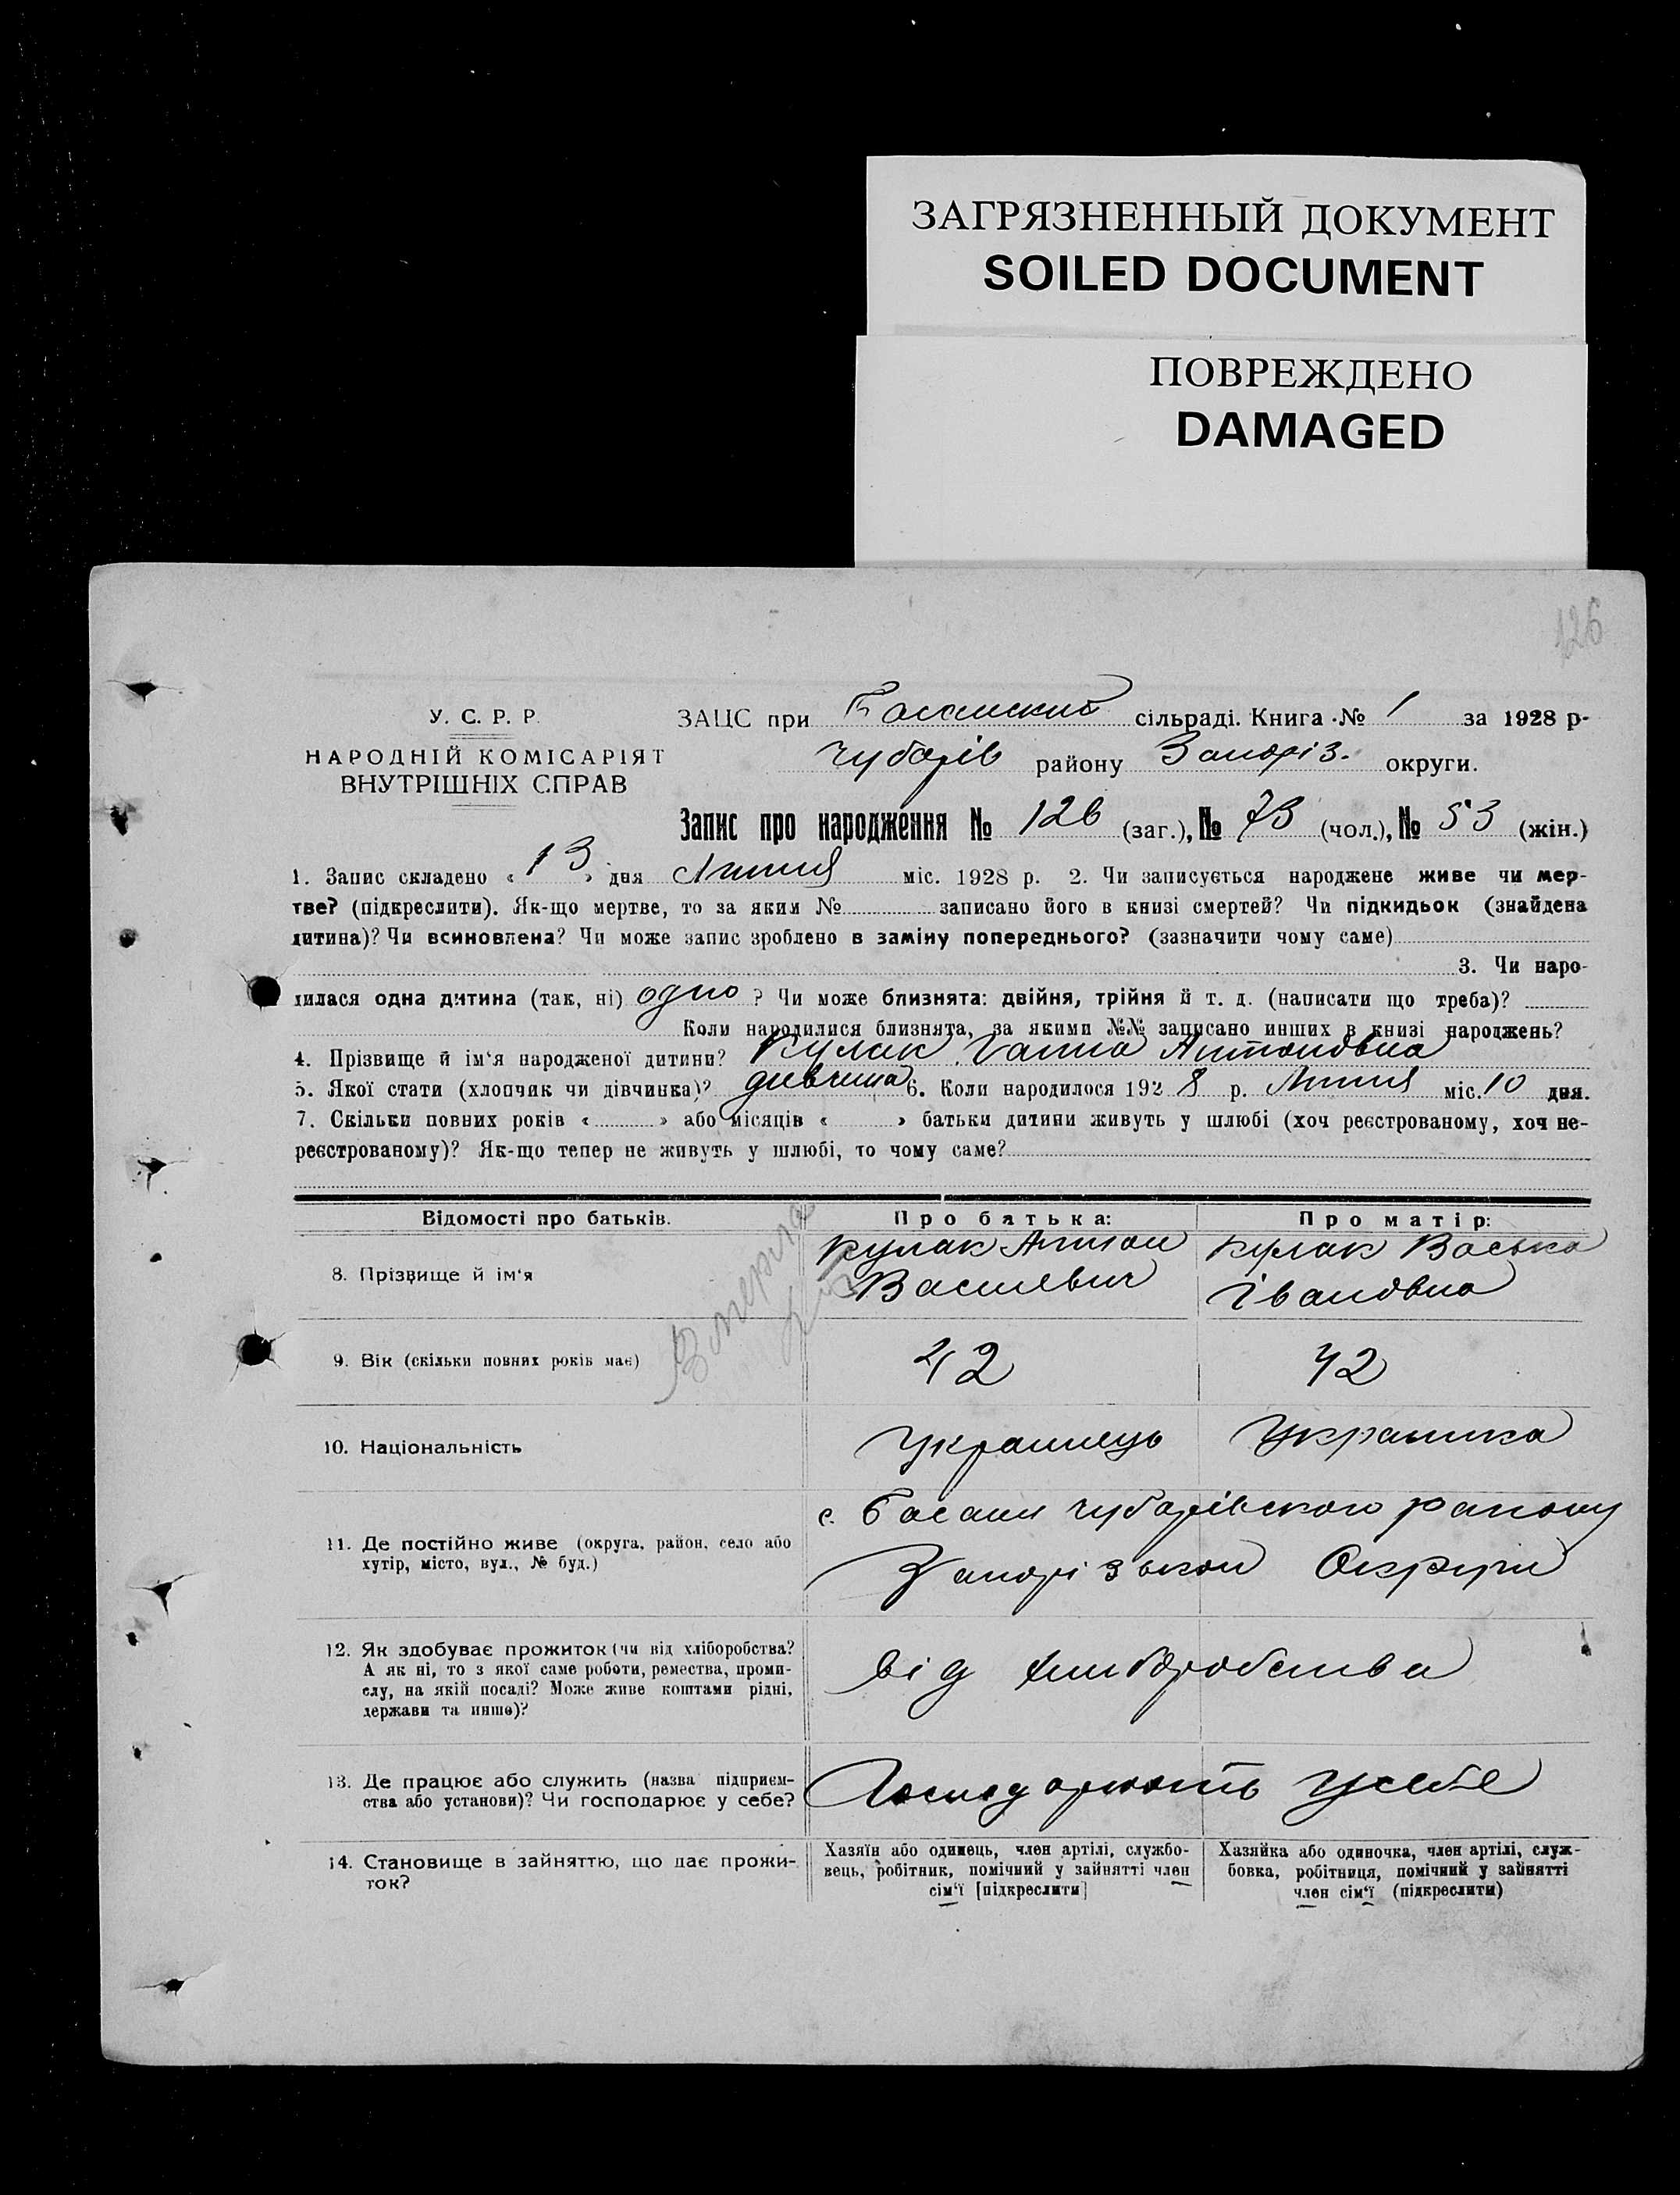 ЗАГРЯЗНЕННЫЙ ДОКУМЕНТ
SOILED DOCUMENT
ПОВРЕЖДЕНО
DAMAGED
126
У. С. Р. Р.
НАРОДНІЙ КОМІСАРІЯТ
ВНУТРІШНІХ СПРАВ
ЗАЦС при Басанский сільраді. Книга № 1 за 1928 р.
Чубарів району Запоріз. округи.
Запис про народження № 126 (заг.), № 73 (чол.), № 53 (жін.)
1. Запис складено « 13 » дня Липня міс. 1928 р. 2. Чи записується народжене живе чи мер-
тве? (підкреслити). Як-що мертве, то за яким № записано його в книзі смертей? Чи підкидьок (знайдена
дитина)? Чи всиновлена? Чи може запис зроблено в заміну попереднього? (зазначити чому саме)
3. Чи наро-
дилася одна дитина (так, ні) одно ? Чи може близнята: двійня, трійня й т. д. (написати що треба)?
Коли народилися близнята, за якими №№ записано инших в книзі народжень?
4. Прізвище й ім‘я народженої дитини? Кулак Ганна Антоновна
5. Якої стати (хлопчик чи дівчинка)? дивчина 6. Коли народилося 192 8 р. Липня міс. 10 дня.
7. Скільки повних років « » або місяців « » батьки дитини живуть у шлюбі (хоч реєстрованому, хоч не-
реєстрованому)? Як-що тепер не живуть у шлюбі, то чому саме?
Відомості про батьків. Про батька: Про матір:
8. Прізвище й ім‘я
Кулак Антон
Василевич
Кулак Васька
Івановна
9. Вік (скільки повних років має) 42 42
10. Національність Украинець Украинка
11. Де постійно живе (округа, район, село або
хутір, місто, вул., № буд.)
с. Басани Чубарівского району
Запорізькои Округи
12. Як здобуває прожиток (чи від хліборобства?
А як ні, то з якої саме роботи, ремества, проми-
слу, на якій посаді? Може живе коштами рідні,
держави та инше)?
від хлиборобства
13. Де працює або служить (назва підприєм-
ства або установи)? Чи господарює у себе?
Господарюють усебе
14. Становище в зайняттю, що дає прожи-
ток?
Хазяїн або одинець, член артілі, службо-
вець, робітник, помічний у зайнятті член
сім‘ї [підкреслити]
Хазяйка або одиночка, член артілі, служ-
бовка, робітниця, помічний у зайнятті
член сім‘ї (підкреслити)